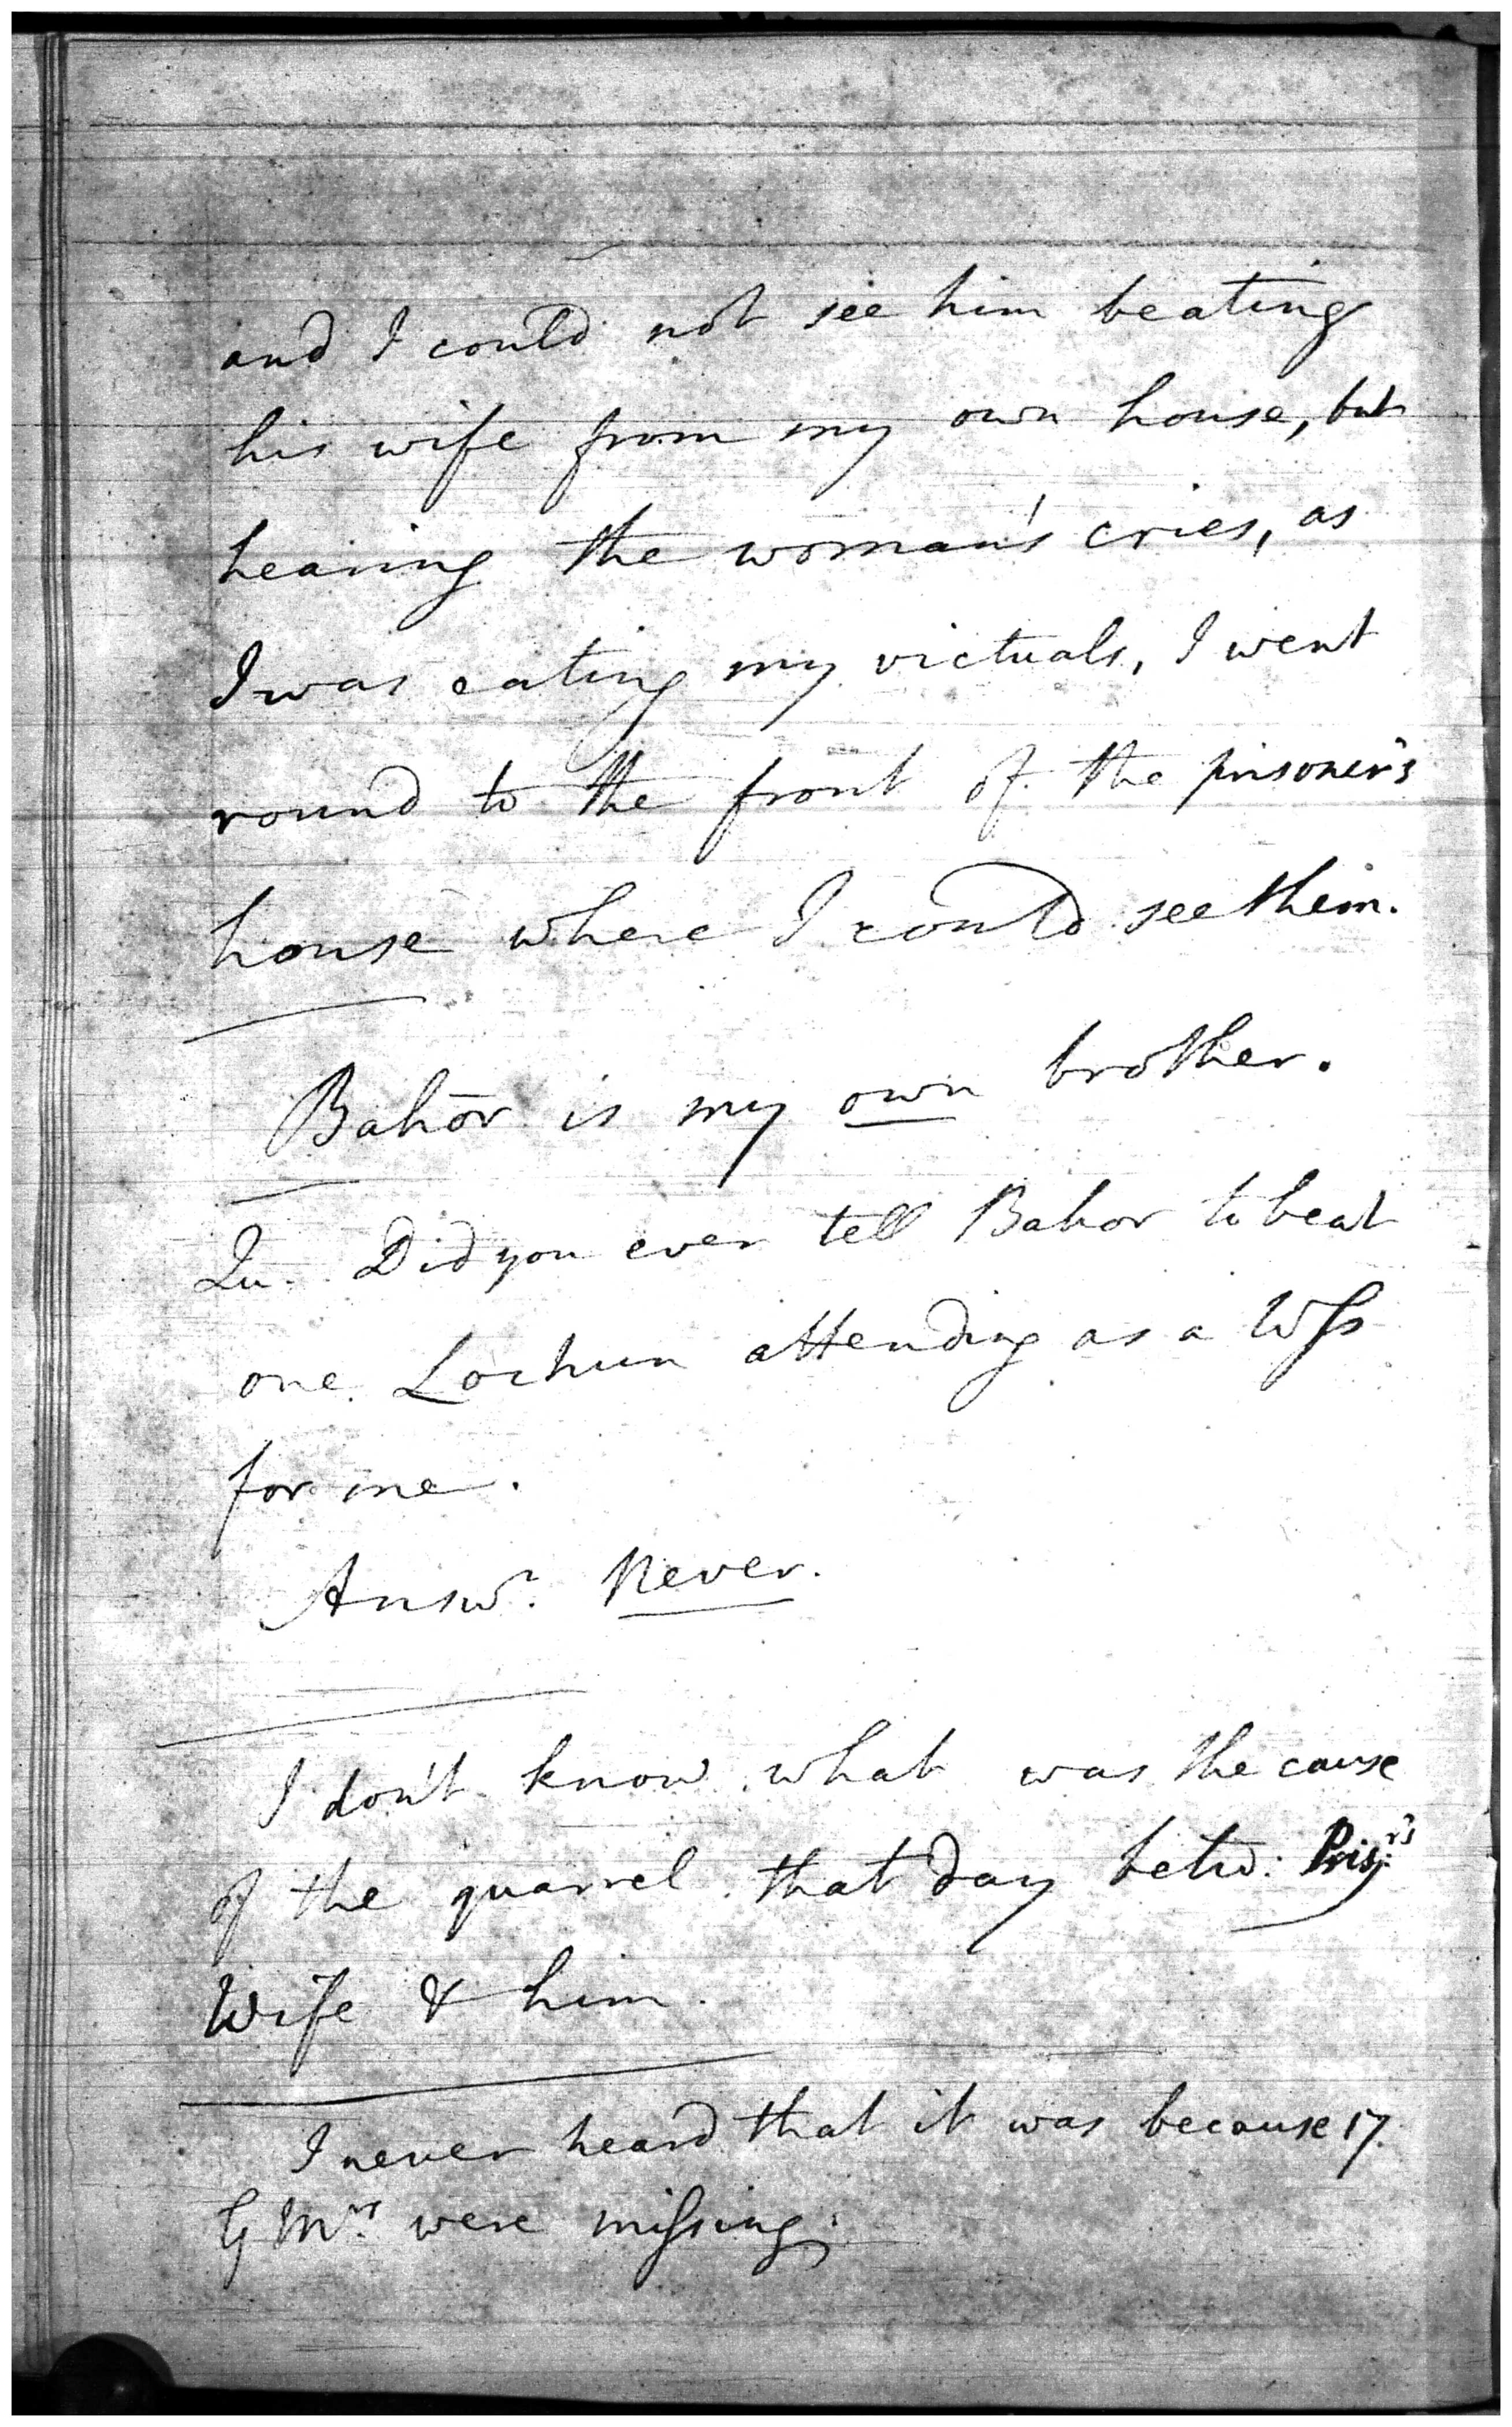 and I could not see him beating
his wife from my own house, but
hearing the woman's cries, as
I was eating my victuals, I went
round to the front of the prisoner's
house where I could see them.
Bahor is my own brother.
Qu. Did you ever tell Bahor to beat
one Lochun attending as a Wss
for me.
Answr. Never.
I don't know what was the cause
of the quarrel that day betw: Prisr's
Wife & him.
I never heard that it was because 17
G Mrs were missing;